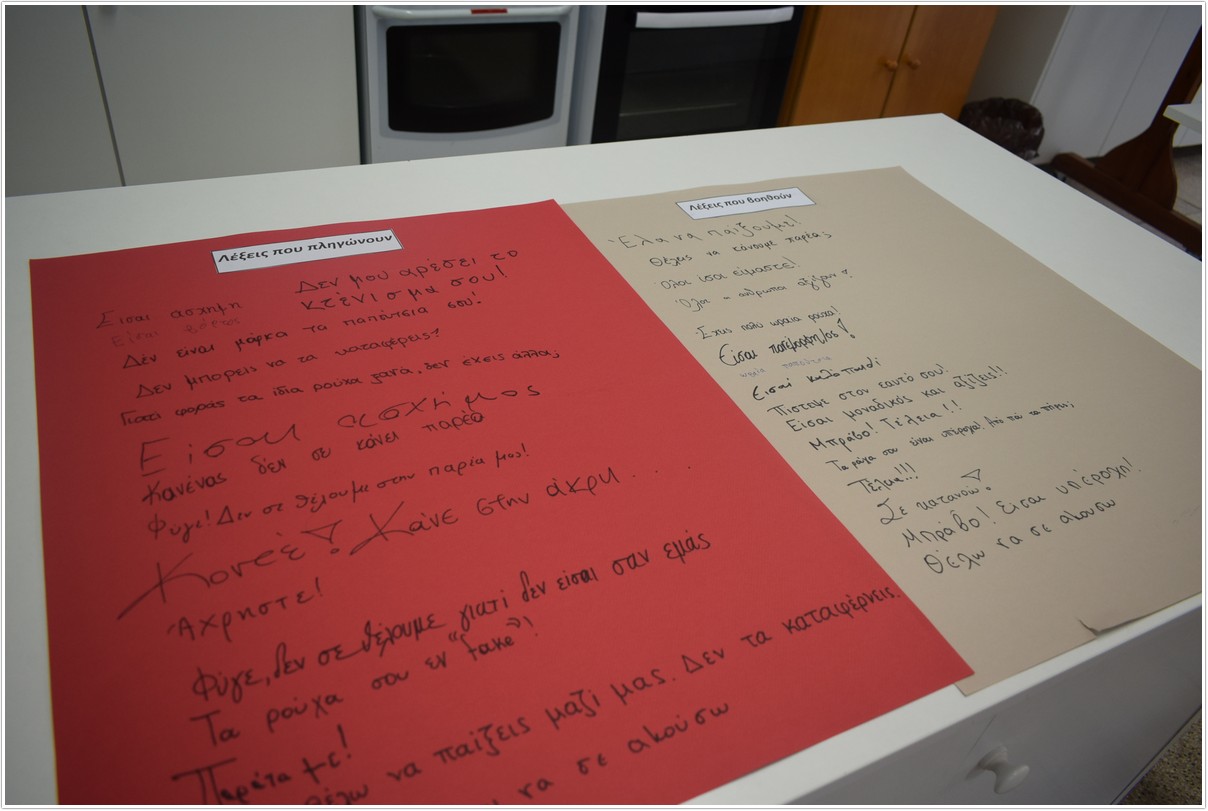 Λέξεις που πληγώνουν
Δεν μου αρέσει το
κτένισμα σου!
Είσαι άσχημη
Είσαι
Δέν είναι μάρκα τα παπούτσια σου!
Δεν μπορείς να τα καταφέρεις?
Γιατί φοράς τα ίδια ρούχα ξανά, δεν έχεις άλλα;
Είσαι ασχημος
Κανένας δέν σε κάνει παρέα
Φύγε! Δεν σε θέλουμε στην παρέα μας!
Κονέέ! Κάνε στην άκρη....
Άχρηστε!
Φύγε, δεν σε θέλουμε γιατί δεν είσαι σαν εμάς
Τα ρούχα σου εν "fake"!
Παράτα με!
θέλω να παίξεις μαζί μας. Δεν τα καταφέρνεις.
να σε ακούσω
Λέξεις που βοηθούν
Έλα να παίξουμε!
Θέλεις να κάνουμε παρέα;
Όλοι ίσοι είμαστε!
Όλοι = άνθρωποι αξίζουν!
Έχεις πολύ ωραία ρούχα!
Είσαι πανέμορφη/ος!
ωραία παπούτσια
Είσαι καλό παιδί
Πίστεψε στον εαυτό σου!
Είσαι μοναδικός και αξίζεις!!
Μπράβο! Τέλεια!!!
Τα ρούχα σου είναι υπέροχα! Από πού τα πήρες;
Τέλεια!!!
Σε κατανοώ!
Μπράβο! Είσαι υπέροχη!
Θέλω να σε ακουσω